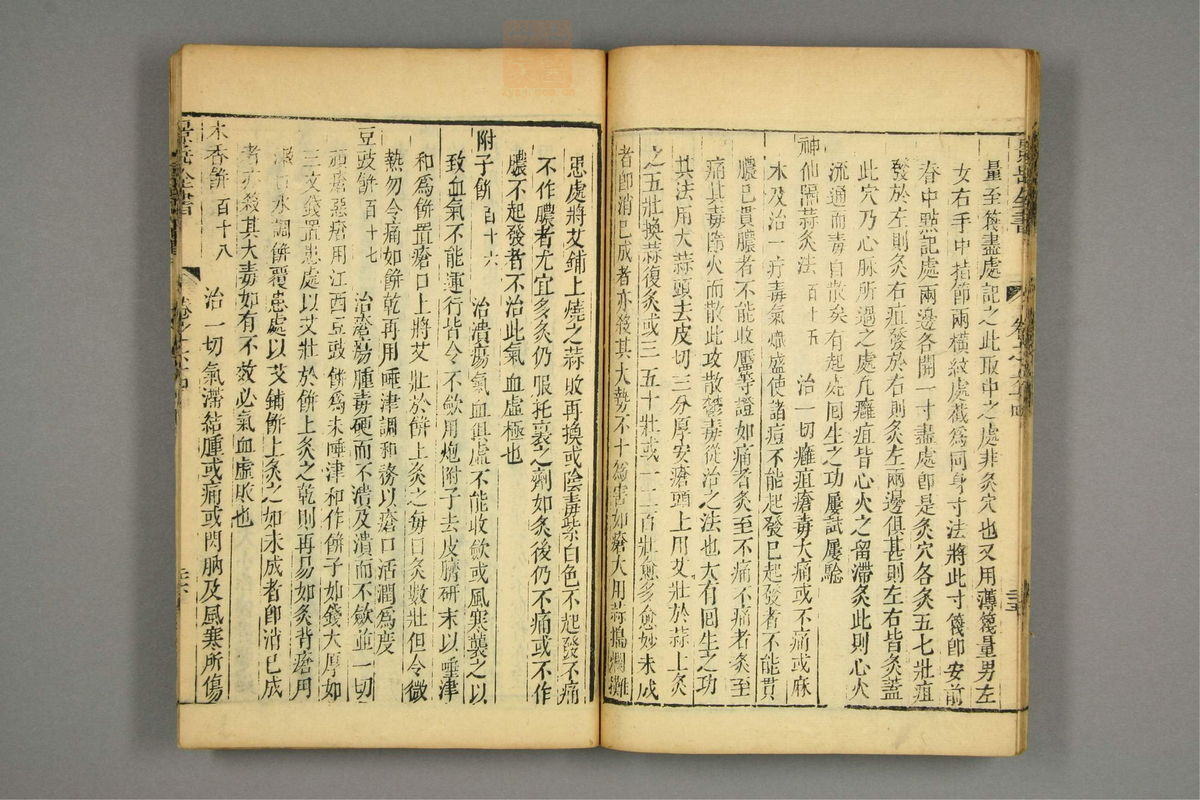 量至篾盡處記之此取中之處非灸穴也又用薄篾量男左
女右手中指節兩橫紋處截爲同身寸法將此寸篾即安前
脊中點記處兩邊各開一寸盡處即是灸穴各灸五七壯疽
發於左則灸右疽發於右則灸左兩邊俱甚則左右皆灸蓋
此穴乃心脉所過之處凡癰疽皆心火之留滯灸此則心火
流通而毒自散矣有起死回生之功屢試屢驗
神仙隔蒜灸法 百十五 治一切癰疽瘡毒大痛或不痛或麻
木及治一疔毒氣熾盛使諸痘不能起發已起發者不能貫
膿已貫膿者不能收靨等證如痛者灸至不痛不痛者灸至
痛其毒隨火而散此攻散鬱毒從治之法也大有回生之功
其法用大蒜頭去皮切三分厚安瘡頭上用艾壯於蒜上灸
之五壯換蒜復灸或三五十壯或一二百壯愈多愈妙未成
者即消已成者亦殺其大勢不十爲害如瘡大用蒜搗爛攤
患處將艾鋪上燒之蒜敗再換或陰毒紫白色不起發不痛
不作膿者尤宜多灸仍服托裏之劑如灸後仍不痛或不作
膿不起發者不治此氣血虛極也
附子餅 百十六 治潰瘍氣血俱虛不能收斂或風寒襲之以
致血氣不能運行皆令不斂用炮附子去皮臍研末以唾津
和爲餅置瘡口上將艾壯於餅上灸之每日灸數壯但令微
熱勿令痛如餅乾再用唾津調和務以瘡口活潤爲度
豆豉餅 百十七 治瘡瘍腫毒硬而不潰及潰而不斂並一切
頑瘡惡瘡用江西豆豉餅爲末唾津和作餅子如錢大厚如
三文錢置患處以艾壯於餅上灸之乾則再易如灸背瘡用
水調餅覆患處以艾鋪餅上灸之如未成者即消已成
者亦殺其大毒如有不效必氣血虛敗也
木香餅 百十八 治一切氣滯結腫或痛或閃肭及風寒所傷
景岳全書
卷之六十四